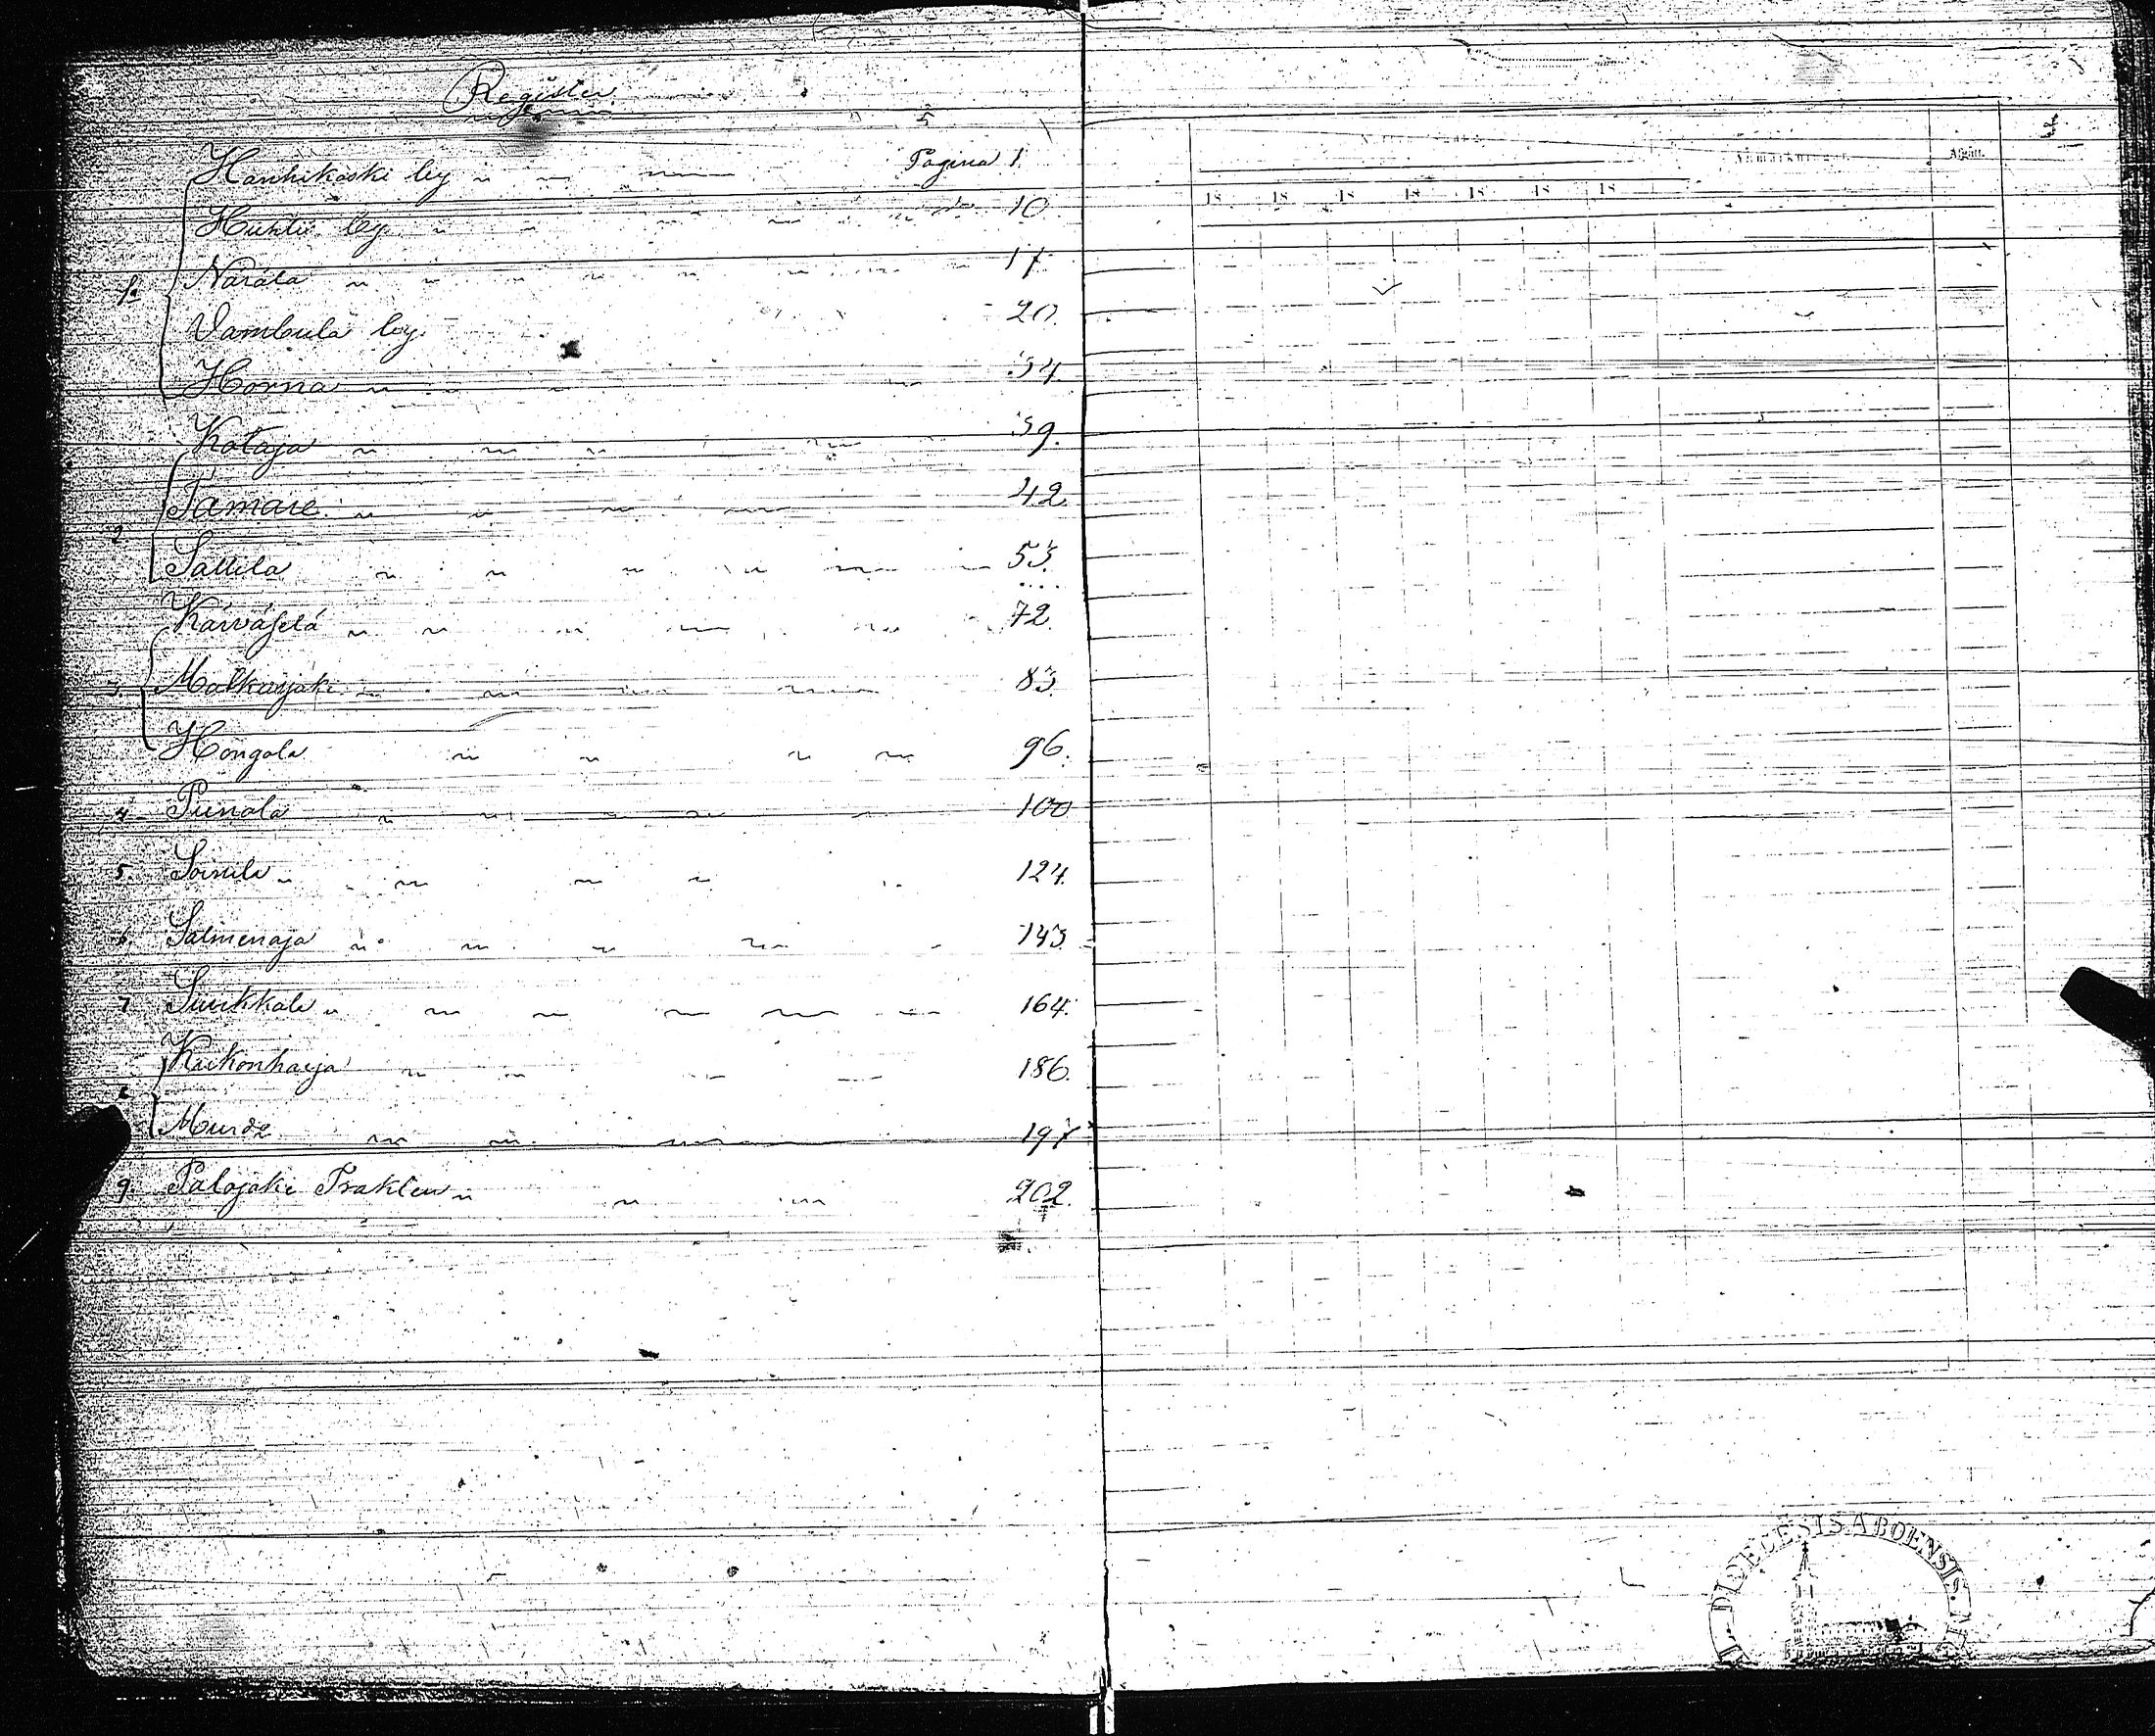 Register
5
Hanhikoski by Pagina 1.
Huhtu by 10.
Narala 17.
1.
Vambula by 20.
Horna 34.
Kataja 39.
Tamare 42.
2
Sallila 53.
Karvasela 72.
3. Matkusjoki 83.
Hongola 96.
4. Punola 100
5. Soinila 124.
6. Salmenoja 143
7. Suukkala 164.
Kuikonharja 186.
8
Murdo 197
9. Palojoki Trakten 202.
Anmärkningar. Afgått.
18 18 18 18 18 18 18
DIŒCESIS ABOENSIS